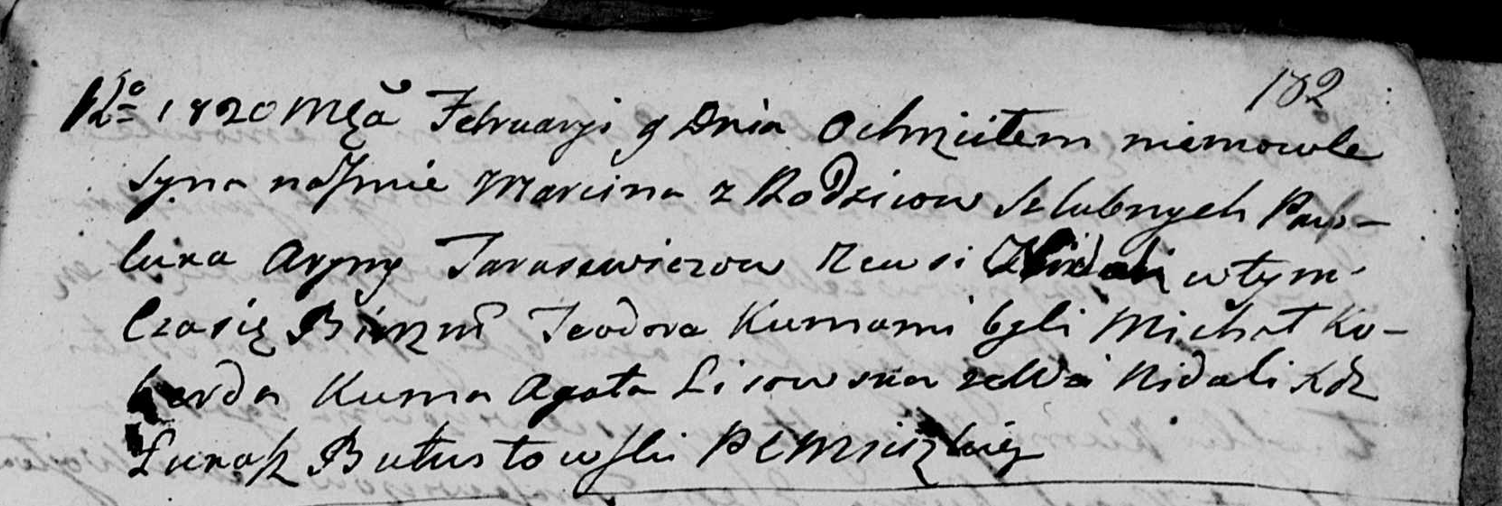 182
Ro 1820 Mca Februaryi 9 Dnia Ochrzciłem niemowle
Syna na Jmie Marcina z Rodzicow Szlubnych Paw-
luka Aryny Tarasewiczow z wsi Nidali w tym
Czasię Bierzmł Teodora Kumami byli Michał Ko-
berda Kuma Agata Lisowska ze Wsi Nidali Xdz
Łukasz Bułustowski